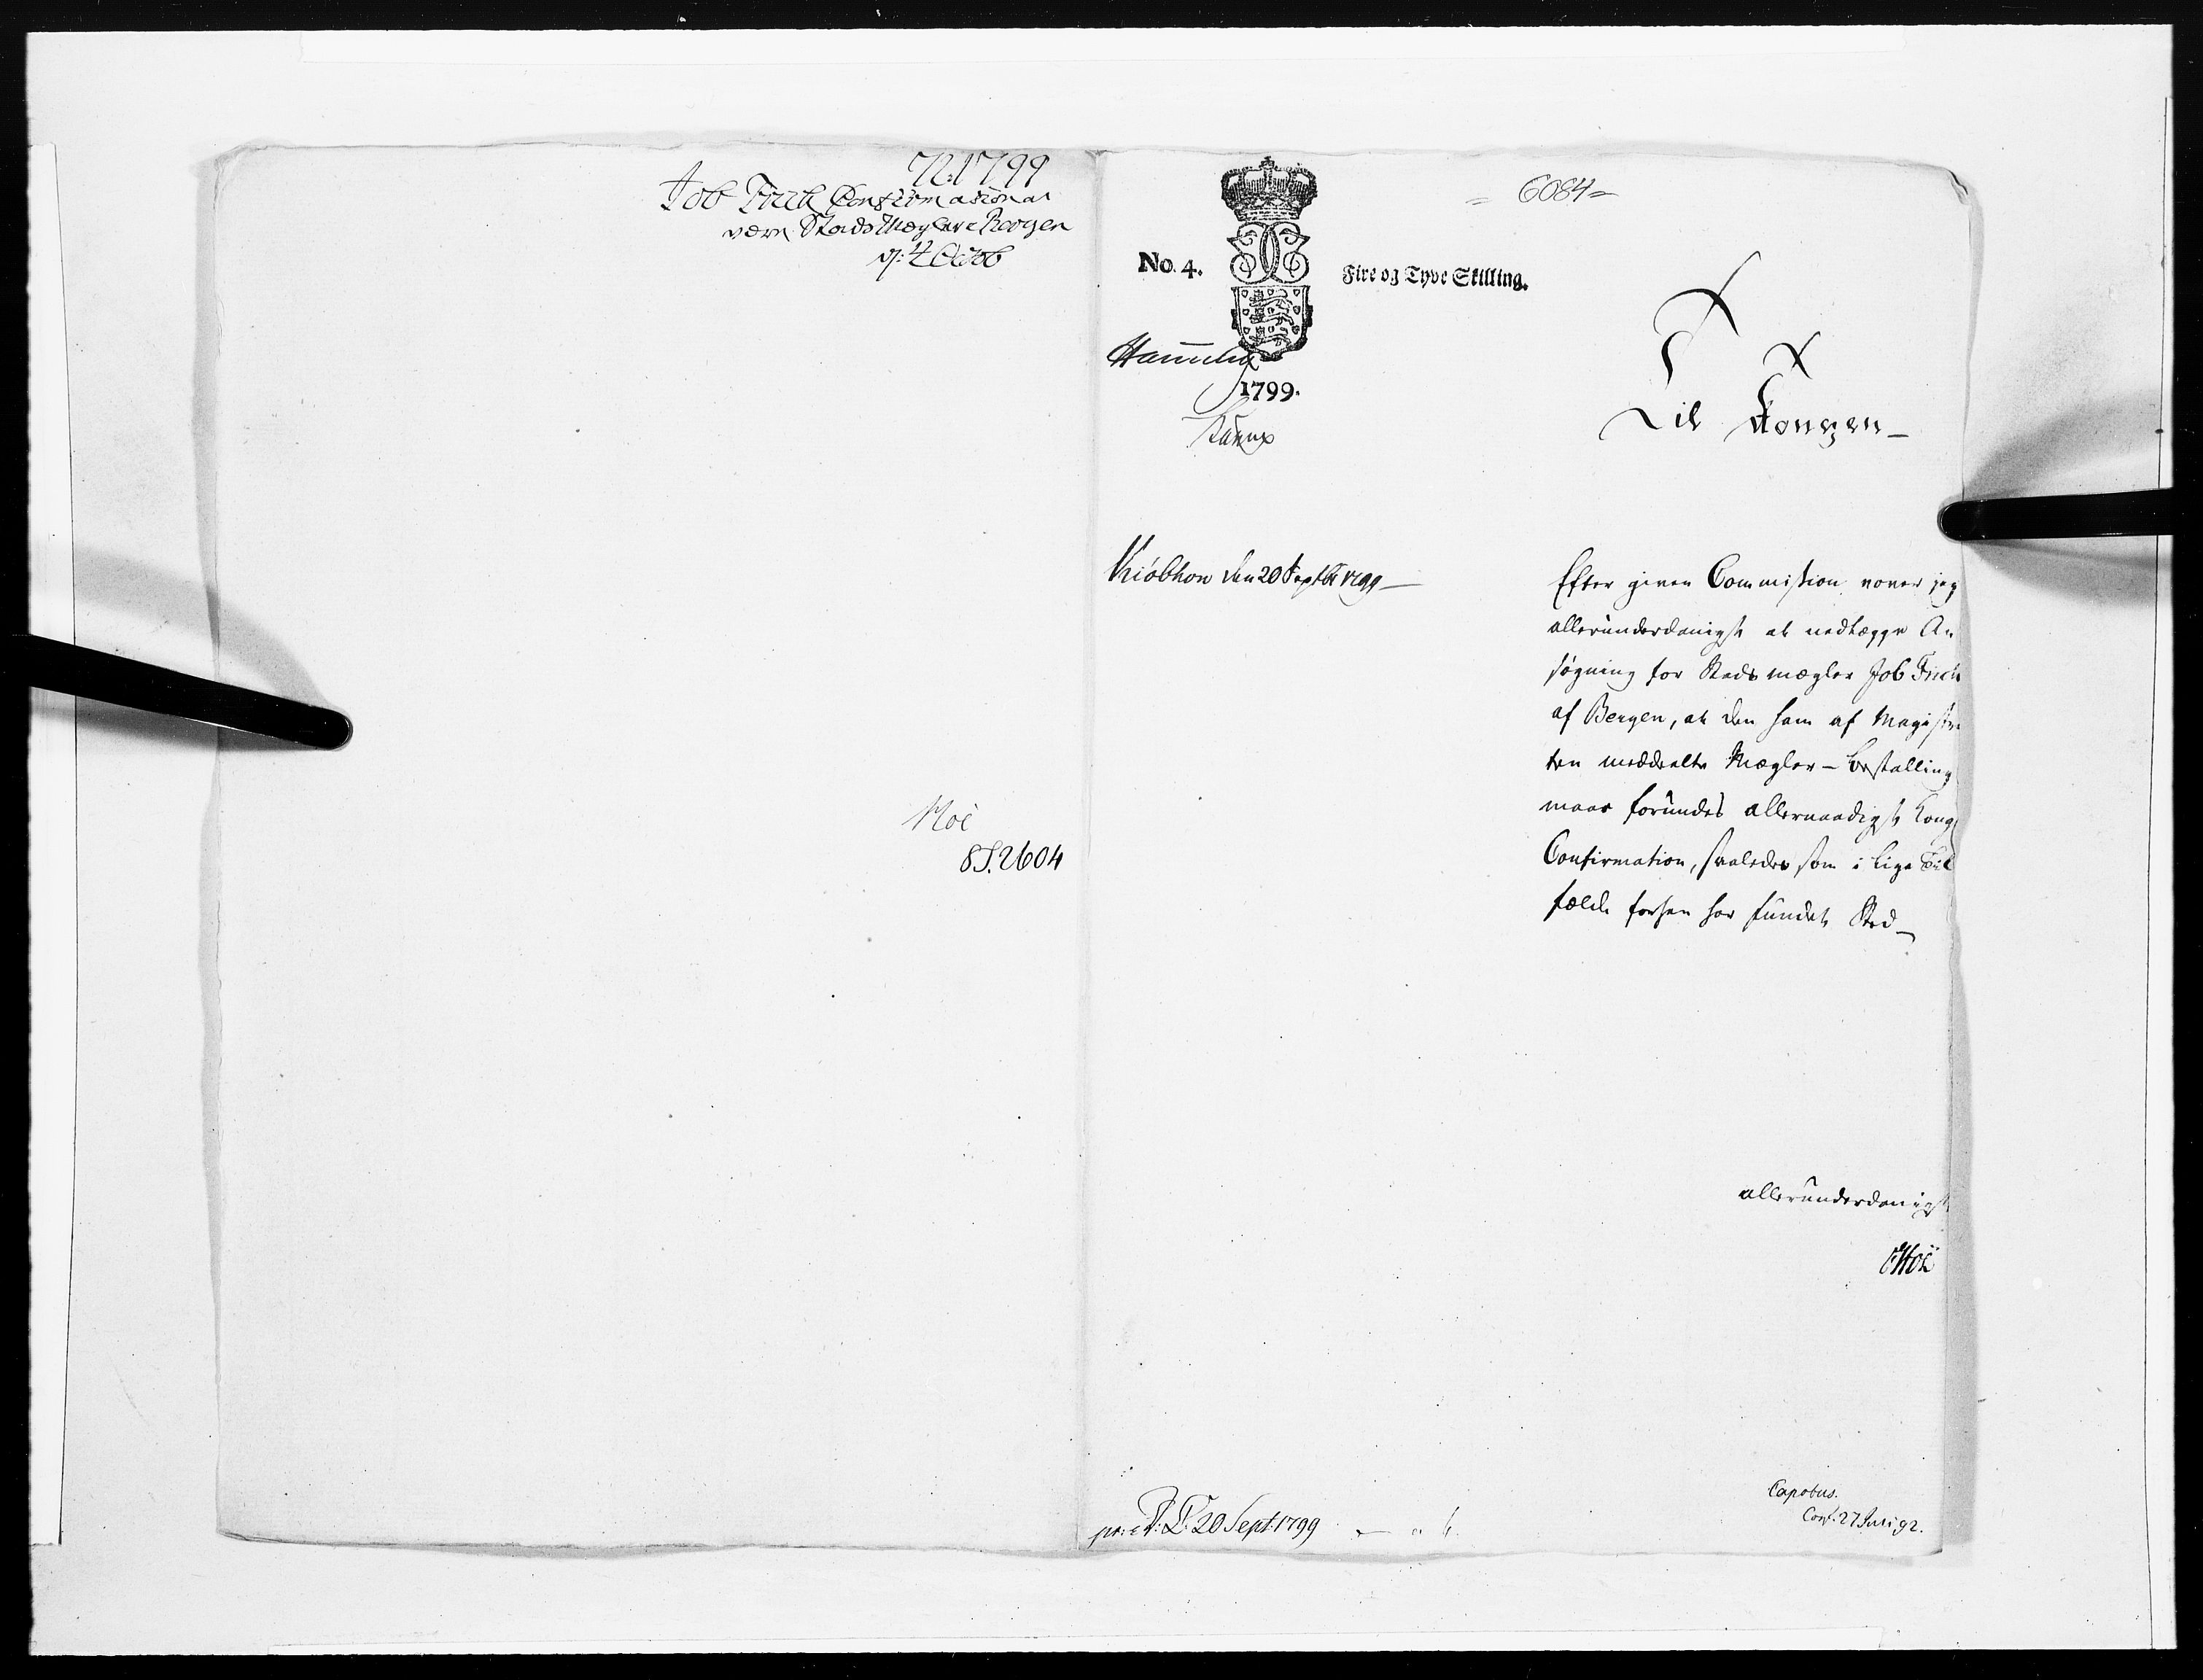 72. 1799
Job Finck Confirmation at
være Stads Mægler i Bergen
4 Octob
Höe
8 S. 2604
= 6084 =
No. 4.
Fire og Tyve Skilling.
1799.
Til Kongen
Kiöbhvn den 20 Septbr 1799
Efter given Commission vover jeg
allerunderdanigst at nedlægge An
søgning for Stads mægler Job Finck
af Bergen, at den ham af Magistra
ten meddeelte Mægler-bestalling
maae forundes allernaadigst Kong
Confirmation, saaledes som i lige Til
fælde forhen har fundet Sted
allerunderdanigst
Höe
pr: d: 20 Sept: 1799
Conf: 27 Juli 92.